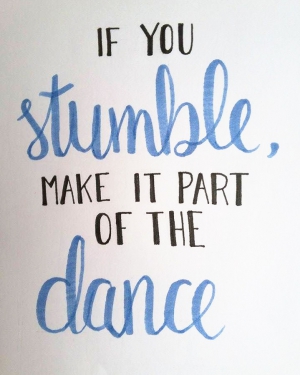 IF YOU
stumble,
MAKE IT PART
OF THE
dance